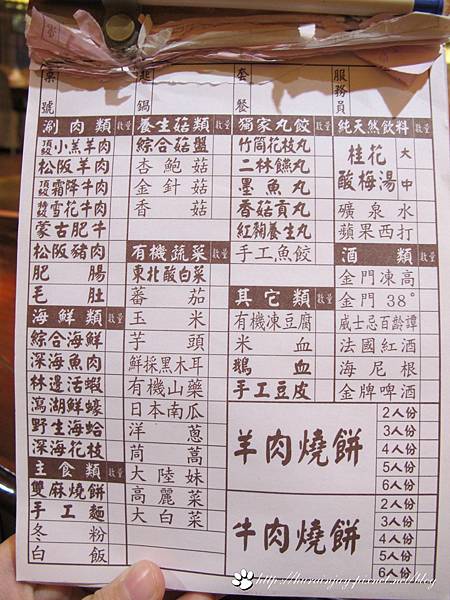 桌號
起鍋
套餐
服務員
涮肉類 數量
頂級小羔羊肉
松阪羊肉
頂級霜降牛肉
特級雪花牛肉
蒙古肥牛
松阪豬肉
肥腸
毛肚
海鮮類 數量
綜合海鮮
深海魚肉
林邊活蝦
瀉湖鮮蠔
野生海蛤
深海花枝
主食類 數量
雙麻燒餅
手工麵
冬粉
白飯
養生菇類 數量
綜合菇盤
杏鮑菇
金針菇
香菇
有機蔬菜 數量
東北酸白菜
蕃茄
玉米
芋頭
鮮採黑木耳
有機山藥
日本南瓜
洋蔥
茼蒿
大陸妹
高麗菜
大白菜
獨家丸餃 數量
竹筒花枝丸
二林䱽丸
墨魚丸
香菇貢丸
紅麴養生丸
手工魚餃
其它類 數量
有機凍豆腐
米血
鵝血
手工豆皮
純天然飲料 數量
桂花酸梅湯 大
中
礦泉水
蘋果西打
酒類 數量
金門凍高
金門38°
威士忌百齡譚
法國紅酒
海尼根
金牌啤酒
羊肉燒餅
2人份
3人份
4人份
5人份
6人份
牛肉燒餅
2人份
3人份
4人份
5人份
6人份